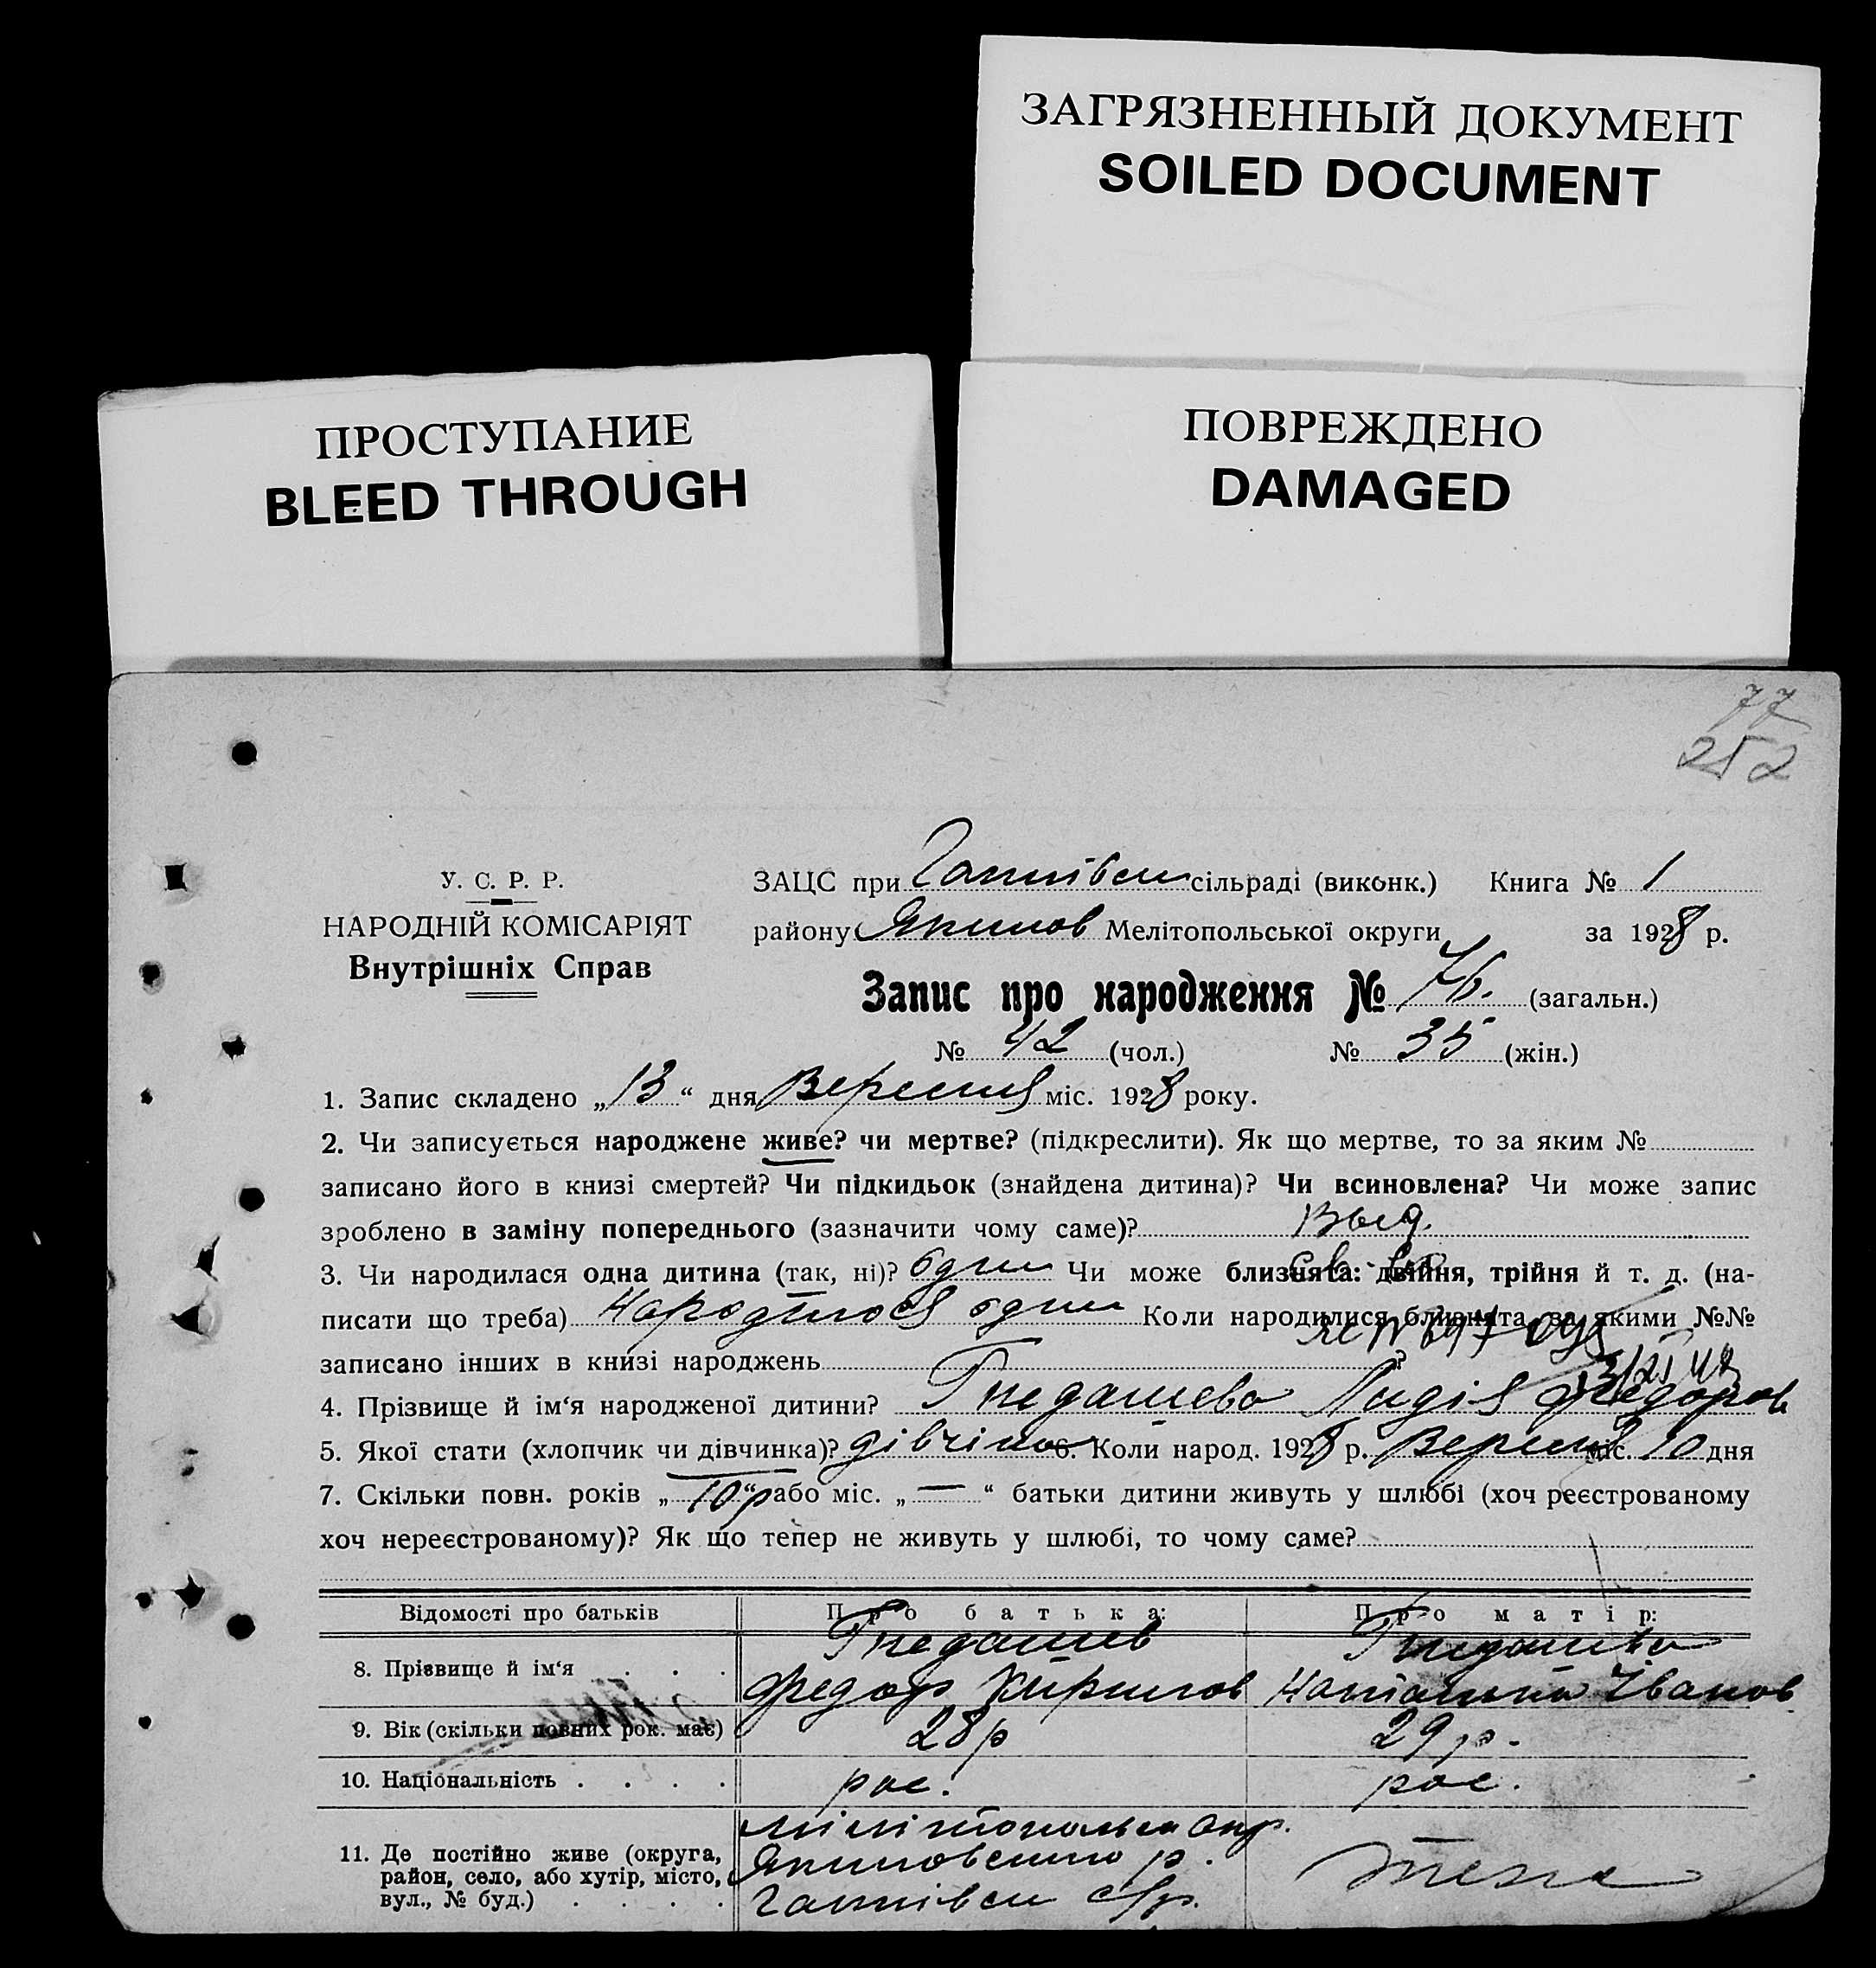 ЗАГРЯЗНЕННЫЙ ДОКУМЕНТ
SOILED DOCUMENT
ПРОСТУПАНИЕ
BLEED THROUGH
ПОВРЕЖДЕНО
DAMAGED
77
252
У. С. Р. Р.
НАРОДНІЙ КОМІСАРІЯТ
Внутрішніх Справ
ЗАЦС при сільраді (виконк.) Книга № 1
району Якимов Мелітопольської округи за 1928 р.
Запис про народження № 76. (загальн.)
№ 42 (чол.) № 35 (жін.)
1. Запис складено „13“ дня Вересня міс. 1928 року.
2. Чи записується народжене живе? чи мертве? (підкреслити). Як що мертве, то за яким №
записано його в книзі смертей? Чи підкидьок (знайдена дитина)? Чи всиновлена? Чи може запис
зроблено в заміну попереднього (зазначити чому саме)?
Выд.
св-во
3. Чи народилася одна дитина (так, ні)? одна Чи може близнята: двійня, трійня й т. д. (на-
писати що треба) Народилося одна Коли народилися близнята, за якими №№
записано інших в книзі народжень ?
4. Прізвище й ім‘я народженої дитини? Гнедашева Лидія Федоров
5. Якої стати (хлопчик чи дівчинка)? дівчина 6. Коли народ. 1928 р. Вересня міс. 10 дня
7. Скільки повн. років „10 р“ або міс. „—“ батьки дитини живуть у шлюбі (хоч реєстрованому
хоч нереєстрованому)? Як що тепер не живуть у шлюбі, то чому саме?
Відомості про батьків Про батька: Про матір:
8. Прізвище й ім‘я . . . Гнедашев Гнедашева
Федор Кирилов Іванов
9. Вік (скільки повних рок. має) 28 р 29 р.
10. Національність . . . . рос. рос.
11. Де постійно живе (округа, район, село, або хутір, місто, вул., № буд.) . . . .
Мілітопольск Окр.
Якимовского р.